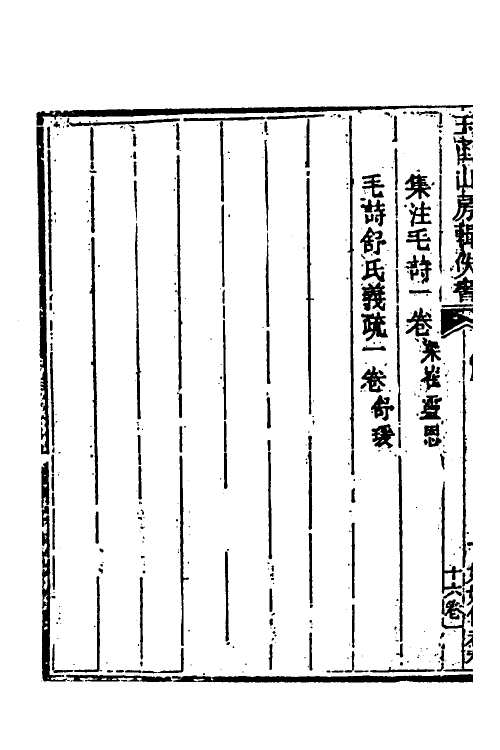 玉函山房輯佚書
十六卷
集注毛詩一卷梁崔靈恩
毛詩舒氏義疏一卷舒瑗